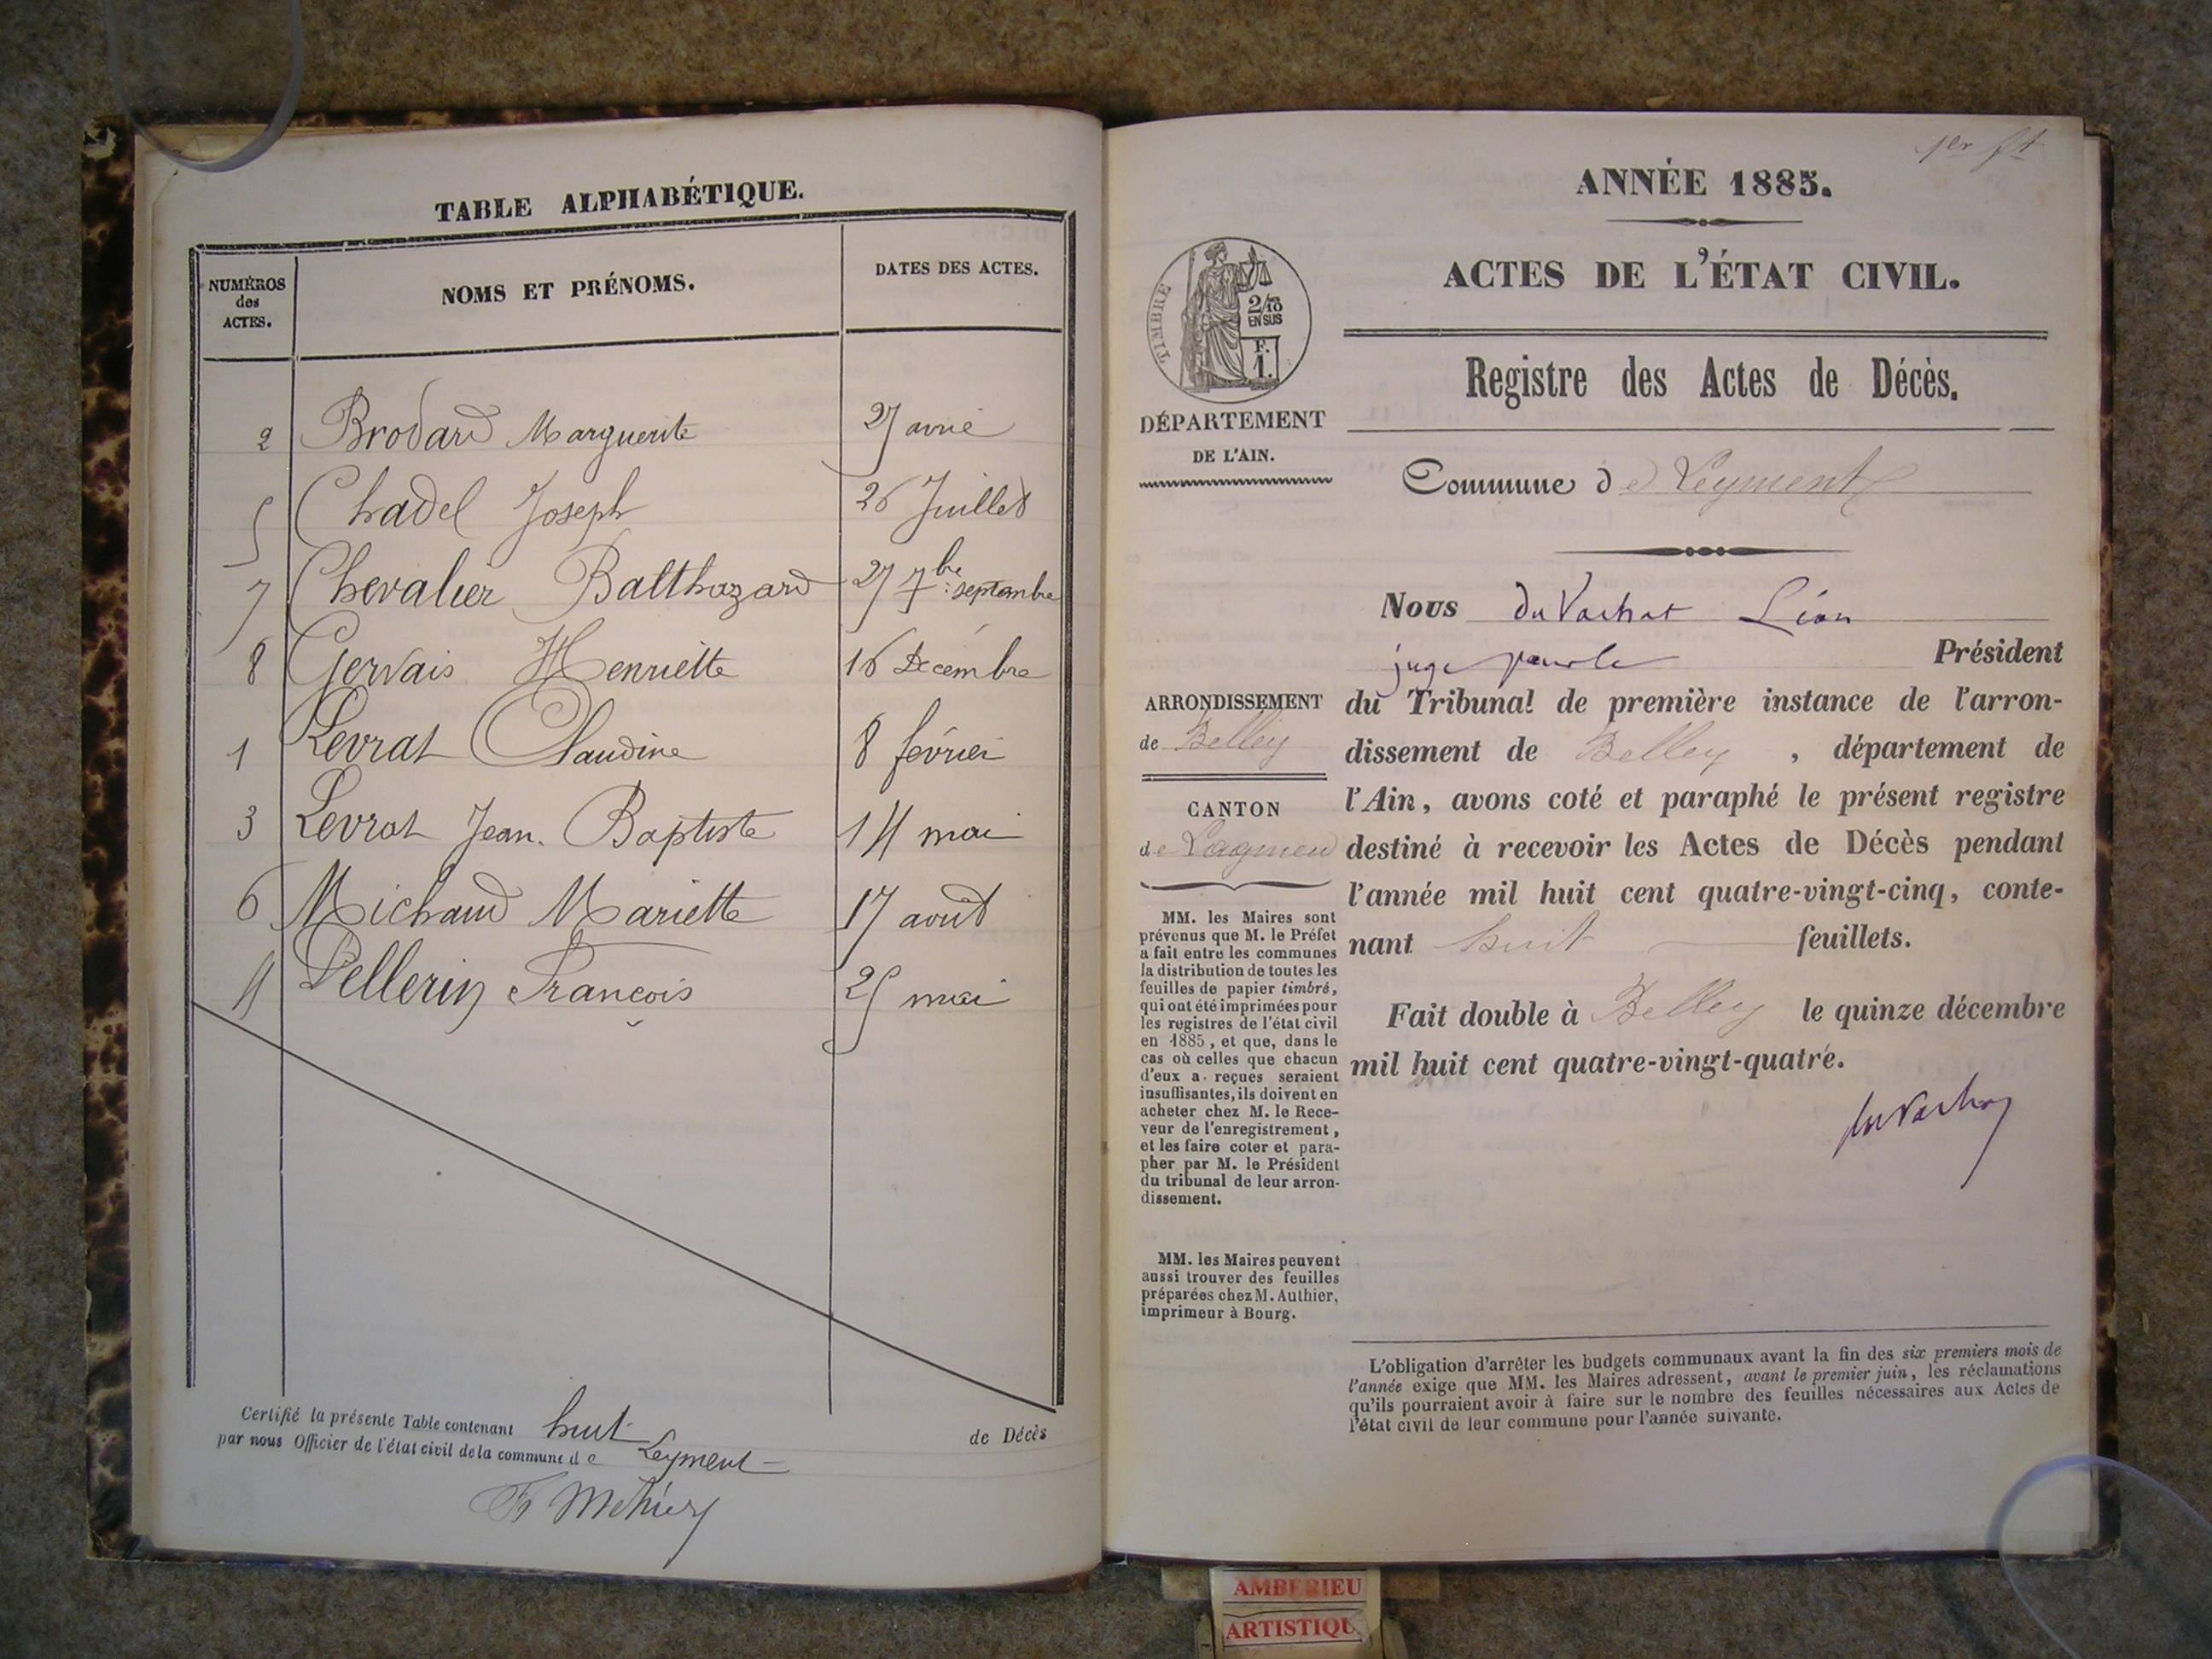 TABLE ALPHABÉTIQUE.
NUMÉROS des ACTES. NOMS ET PRÉNOMS. DATES DES ACTES.
2 Brodard Marguerite 27 avril
5 Chadel Joseph 26 Juillet
7 Chevalier Balthazard 27 7bre septembre
8 Gervais Henriette 16 Décembre
1 Levrat Claudine 8 février
3 Levrat Jean Baptiste 14 mai
6 Michaud Mariette 17 août
4 Pellerin François 25 mai
Certifié la présente Table contenant huit de Décès
par nous Officier de l'état civil de la commune de Leyment
1er ft
ANNÉE 1885.
ACTES DE L'ÉTAT CIVIL.
TIMBRE
2/10
EN SUS
F.
1.
Registre des Actes de Décès.
DÉPARTEMENT
DE L'AIN.
Commune de Leyment
Nous du Vachat Léon
juge pour le Président
du Tribunal de première instance de l'arron-
dissement de Belley, département de
l'Ain, avons coté et paraphé le présent registre
destiné à recevoir les Actes de Décès pendant
l'année mil huit cent quatre-vingt-cinq, conte-
nant huit feuillets.
Fait double à Belley le quinze décembre
mil huit cent quatre-vingt-quatre.
du Vachat
ARRONDISSEMENT
de Belley
CANTON
de Lagnieu
MM. les Maires sont
prévenus que M. le Préfet
a fait entre les communes
la distribution de toutes les
feuilles de papier timbré,
qui ont été imprimées pour
les registres de l'état civil
en 1885, et que, dans le
cas où celles que chacun
d'eux a reçues seraient
insuffisantes, ils doivent en
acheter chez M. le Rece-
veur de l'enregistrement,
et les faire coter et para-
pher par M. le Président
du tribunal de leur arron-
dissement.
MM. les Maires peuvent
aussi trouver des feuilles
préparées chez M. Authier,
imprimeur à Bourg.
L'obligation d'arrêter les budgets communaux avant la fin des six premiers mois de
l'année exige que MM. les Maires adressent, avant le premier juin, les réclamations
qu'ils pourraient avoir à faire sur le nombre des feuilles nécessaires aux Actes de
l'état civil de leur commune pour l'année suivante.
AMBERIEU
ARTISTIQU